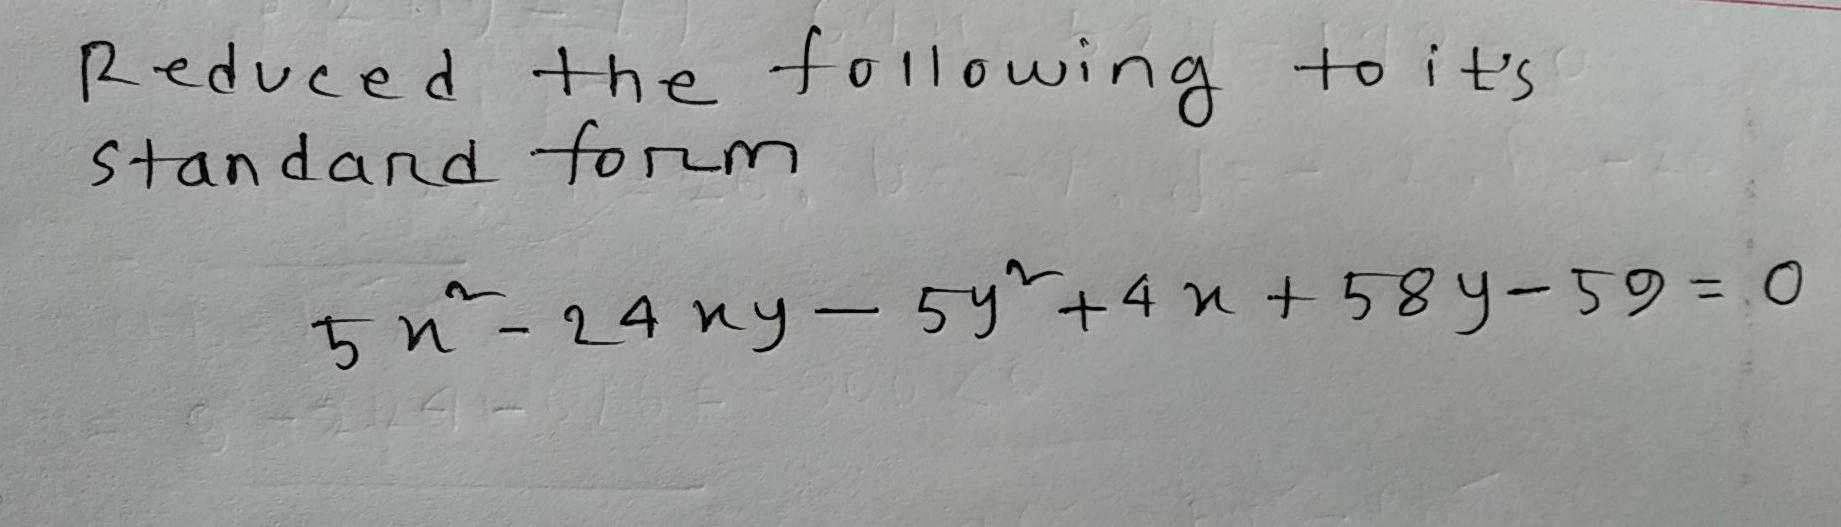 Reduced the following to it's
standard form
5x² - 24xy - 5y² + 4x + 58y - 59 = 0